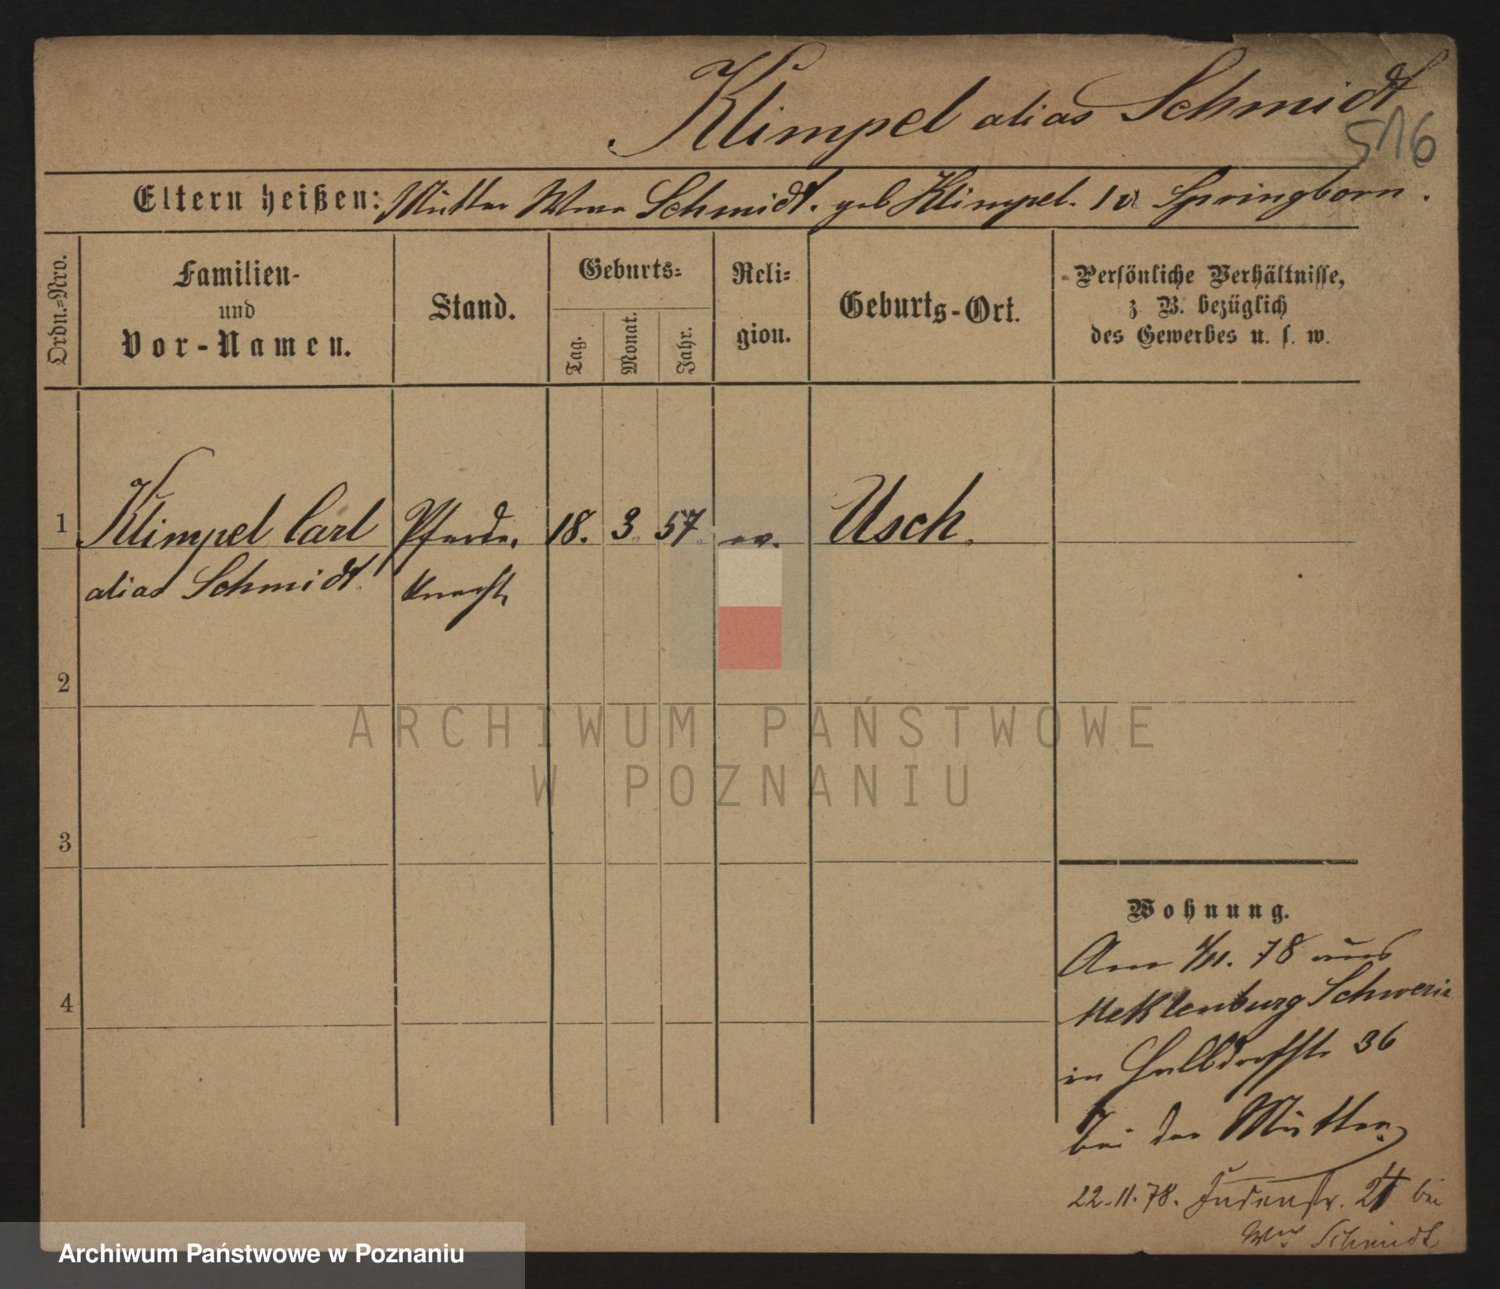 Klimpel alias Schmidt
516
Eltern heißen: Mutter Wwe Schmidt. geb Klimpel. 1 v Springborn.
Ordn.=Nro.
Familien-
und
Vor-Namen.
Stand.
Geburts=
Tag.
Monat.
Jahr.
Reli=
gion.
Geburts-Ort.
Persönliche Verhältnisse,
z B. bezüglich
des Gewerbes u. s. w.
1 Klimpel Carl Pferde 18. 3. 57. ev. Usch.
alias Schmidt knecht
2
3
4
Wohnung.
Am 4/11. 78 aus
Meklenburg Schwerin
in Halbdorfstr 36
bei der Mutter
22.11.78. Judenstr. 24 bei
Wwe Schmidt
ARCHIWUM PAŃSTWOWE
W POZNANIU
Archiwum Państwowe w Poznaniu